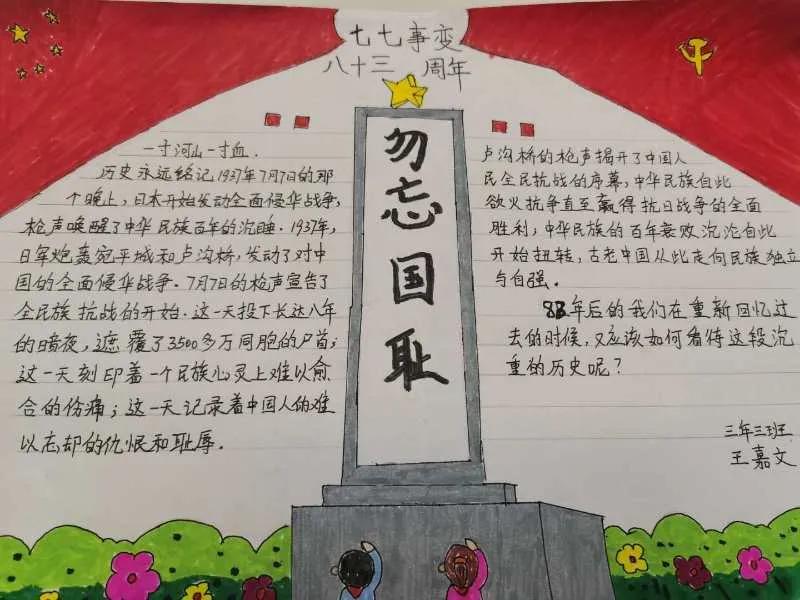 七七事变
八十三 周年
勿忘国耻
一寸河山一寸血.
历史永远铭记1937年7月7日的那
个晚上,日本开始发动全面侵华战争,
枪声唤醒了中华民族百年的沉睡.1937年,
日军炮轰宛平城和卢沟桥,发动了对中
国的全面侵华战争.7月7日的枪声宣告了
全民族抗战的开始.这一天投下长达八年
的暗夜,遮覆了3500多万同胞的尸首;
这一天刻印着一个民族心灵上难以愈
合的伤痛;这一天记录着中国人的难
以忘却的仇恨和耻辱.
卢沟桥的枪声揭开了中国人
民全民抗战的序幕,中华民族自此
欲火抗争直至赢得抗日战争的全面
胜利,中华民族的百年衰败沉沦自此
开始扭转,古老中国从此走向民族独立
与自强.
83年后的我们在重新回忆过
去的时候,又应该如何看待这段沉
重的历史呢?
三年三班
王嘉文